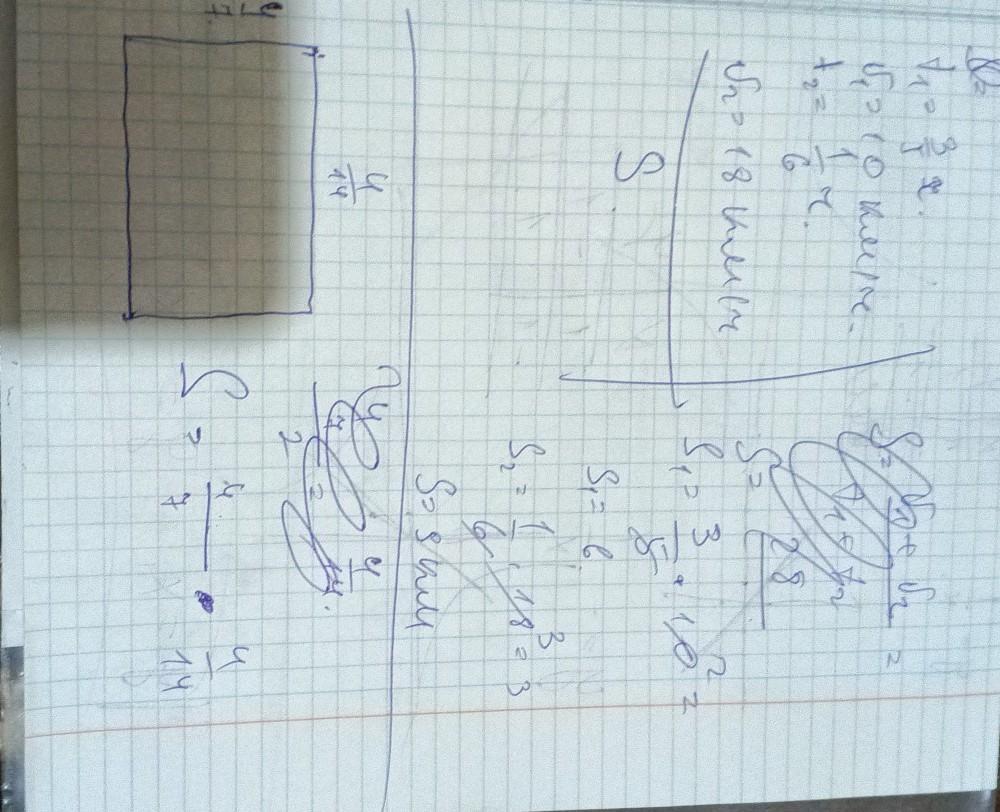 t₁ = 3/5 ч.
v₁ = 10 км/ч.
t₂ = 1/6 ч.
v₂ = 18 км/ч
S
S₁ = 3/5 · 10² =
S₁ = 6
S₂ = 1/6 · 18³ = 3
S = 9 км
4/14
4/7
S = 4/7 · 4/14